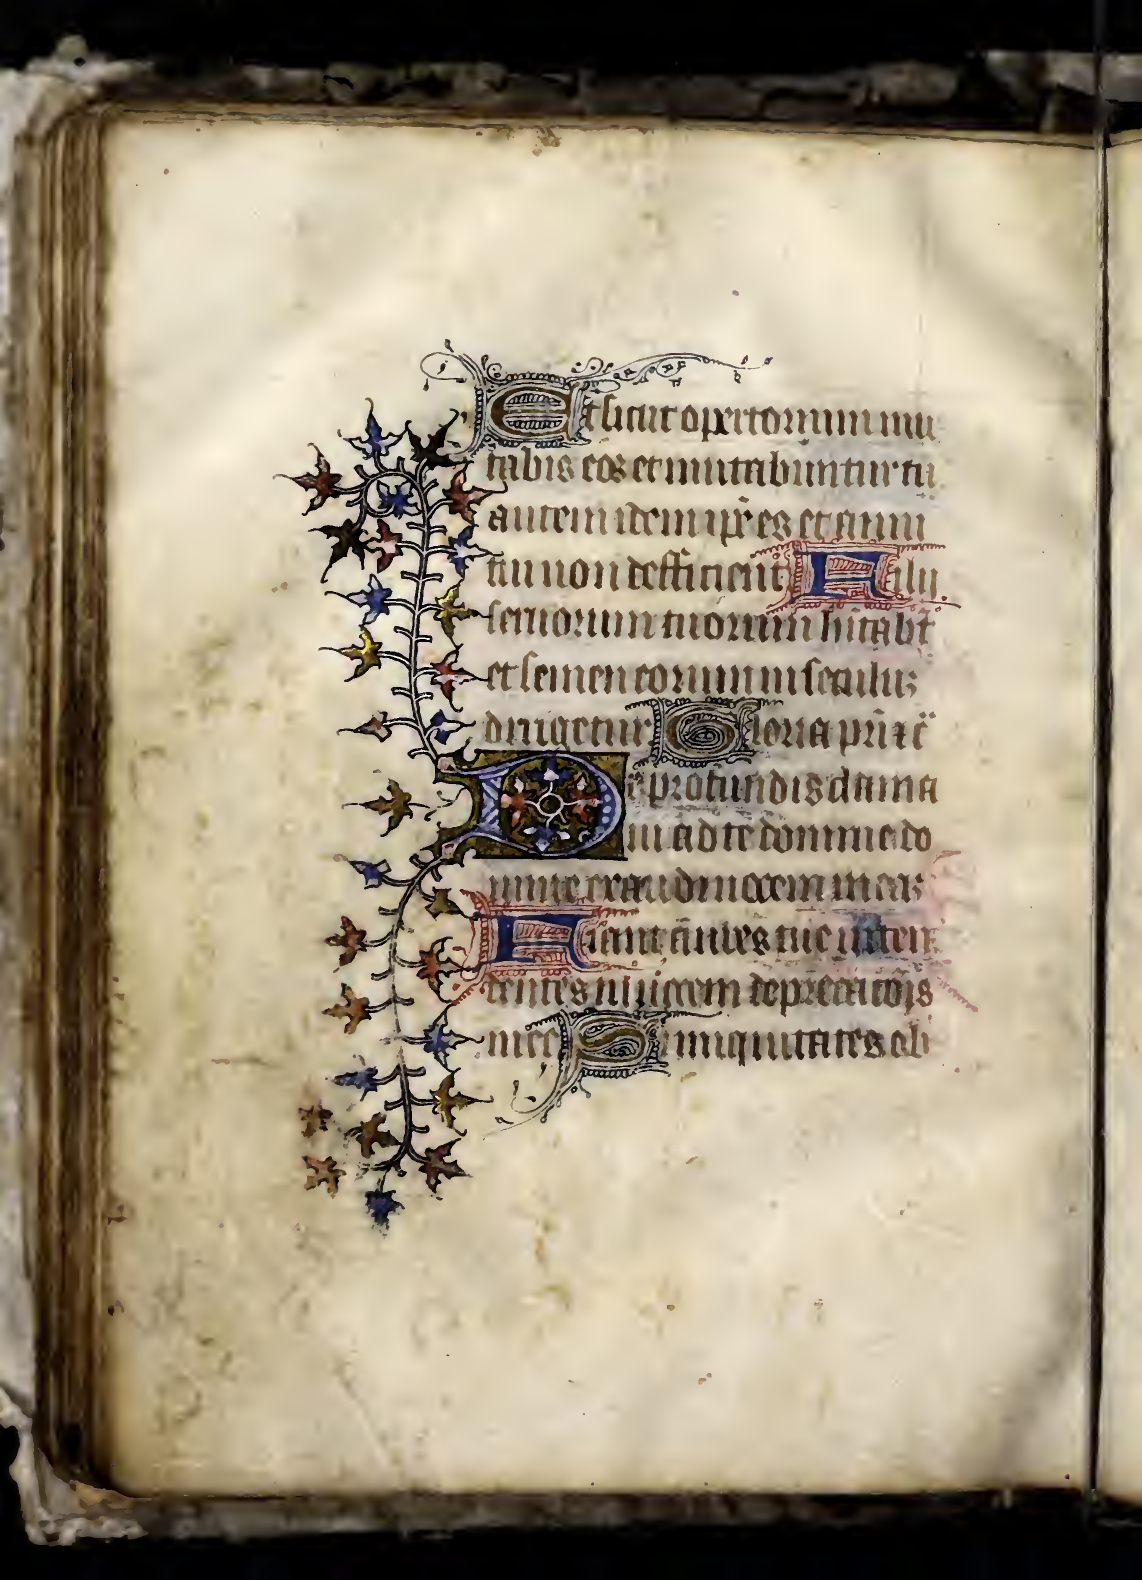 Et sicut opertorium mu
tabis eos et mutabuntur tu
autem idem ip̄e es et anni
tui non defficient Filij
seruorum tuorum hītabt̄
et semen eorum in seculuꝫ
dirigetur Gloria pr̄i ⁊ c̄
De profundis clama
ui ad te domine do
mine exaudi uocem meaꝫ
Fiant āures tue inten
dentes in uocem deprecatōis
mee Si iniquitates ob